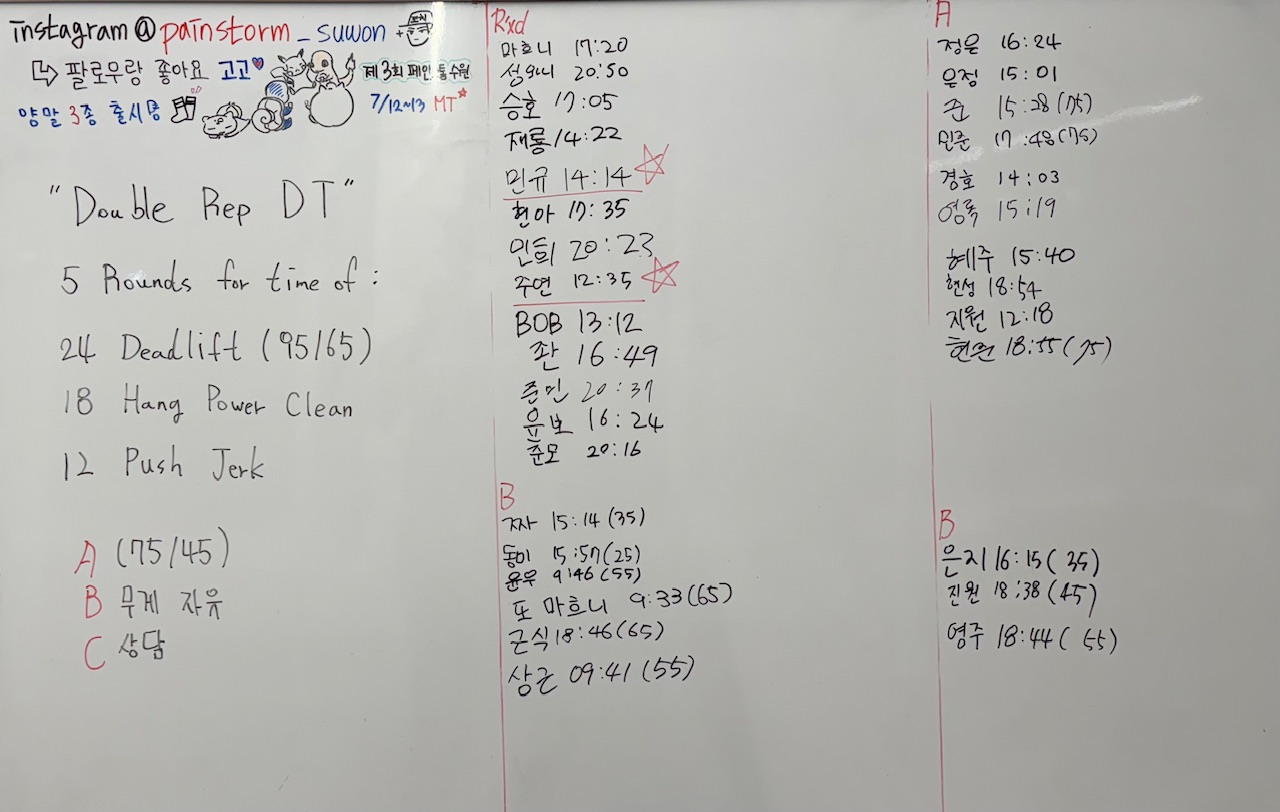 instagram @ painstorm _ suwon
팔로우랑 좋아요 고고
제 3회 페인스톰 수원
양말 3종 출시
7/12~13 MT
"Double Rep DT"
5 Rounds for time of :
24 Deadlift (95/65)
18 Hang Power Clean
12 Push Jerk
A (75/45)
B 무게 자유
C 상담
R'xd
마흐니 17:20
성워니 20:50
승호 17:05
재룡 14:22
민규 14:14
현아 17:35
민희 20:23
주연 12:35
BOB 13:12
좐 16:49
준민 20:37
유보 16:24
준모 20:16
B
짜 15:14 (35)
동이 15:57 (25)
윤우 9:46 (55)
또 마흐니 9:33 (65)
근식 18:46 (65)
상근 09:41 (55)
A
정은 16:24
은정 15:01
준 15:28 (75)
민준 17:48 (75)
경호 14:03
영록 15:19
혜주 15:40
현성 18:54
지원 12:18
현원 18:55 (75)
B
은지 16:15 (35)
진원 18:38 (45)
영주 18:44 (55)